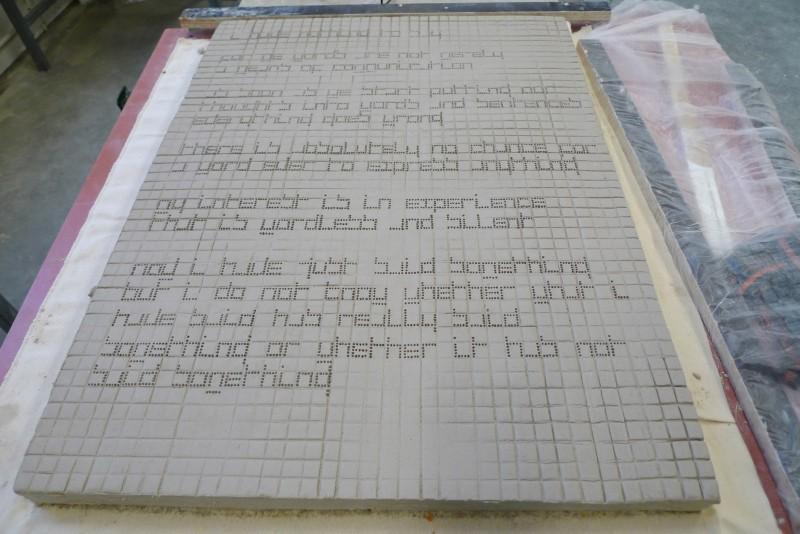 nothing to say
for me words are not merely
a means of communication
as soon as we start putting our
thoughts into words and sentences
everything goes wrong
there is absolutely no chance for
a word ever to express anything
my interest is in experience
that is wordless and silent
now i have just said something
but i do not know whether what i
have said has really said
something or whether it has not
said something